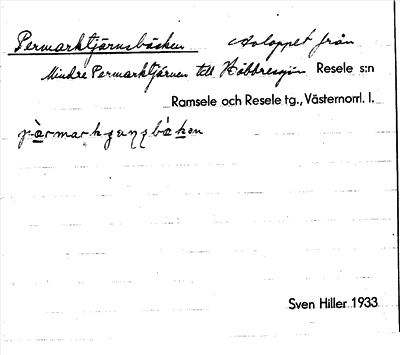 Permarktjärnsbäcken Avloppet från
Mindre Permarktjärnen till Resele s:n
Ramsele och Resele tg., Västernorrl. l.
Sven Hiller 1933